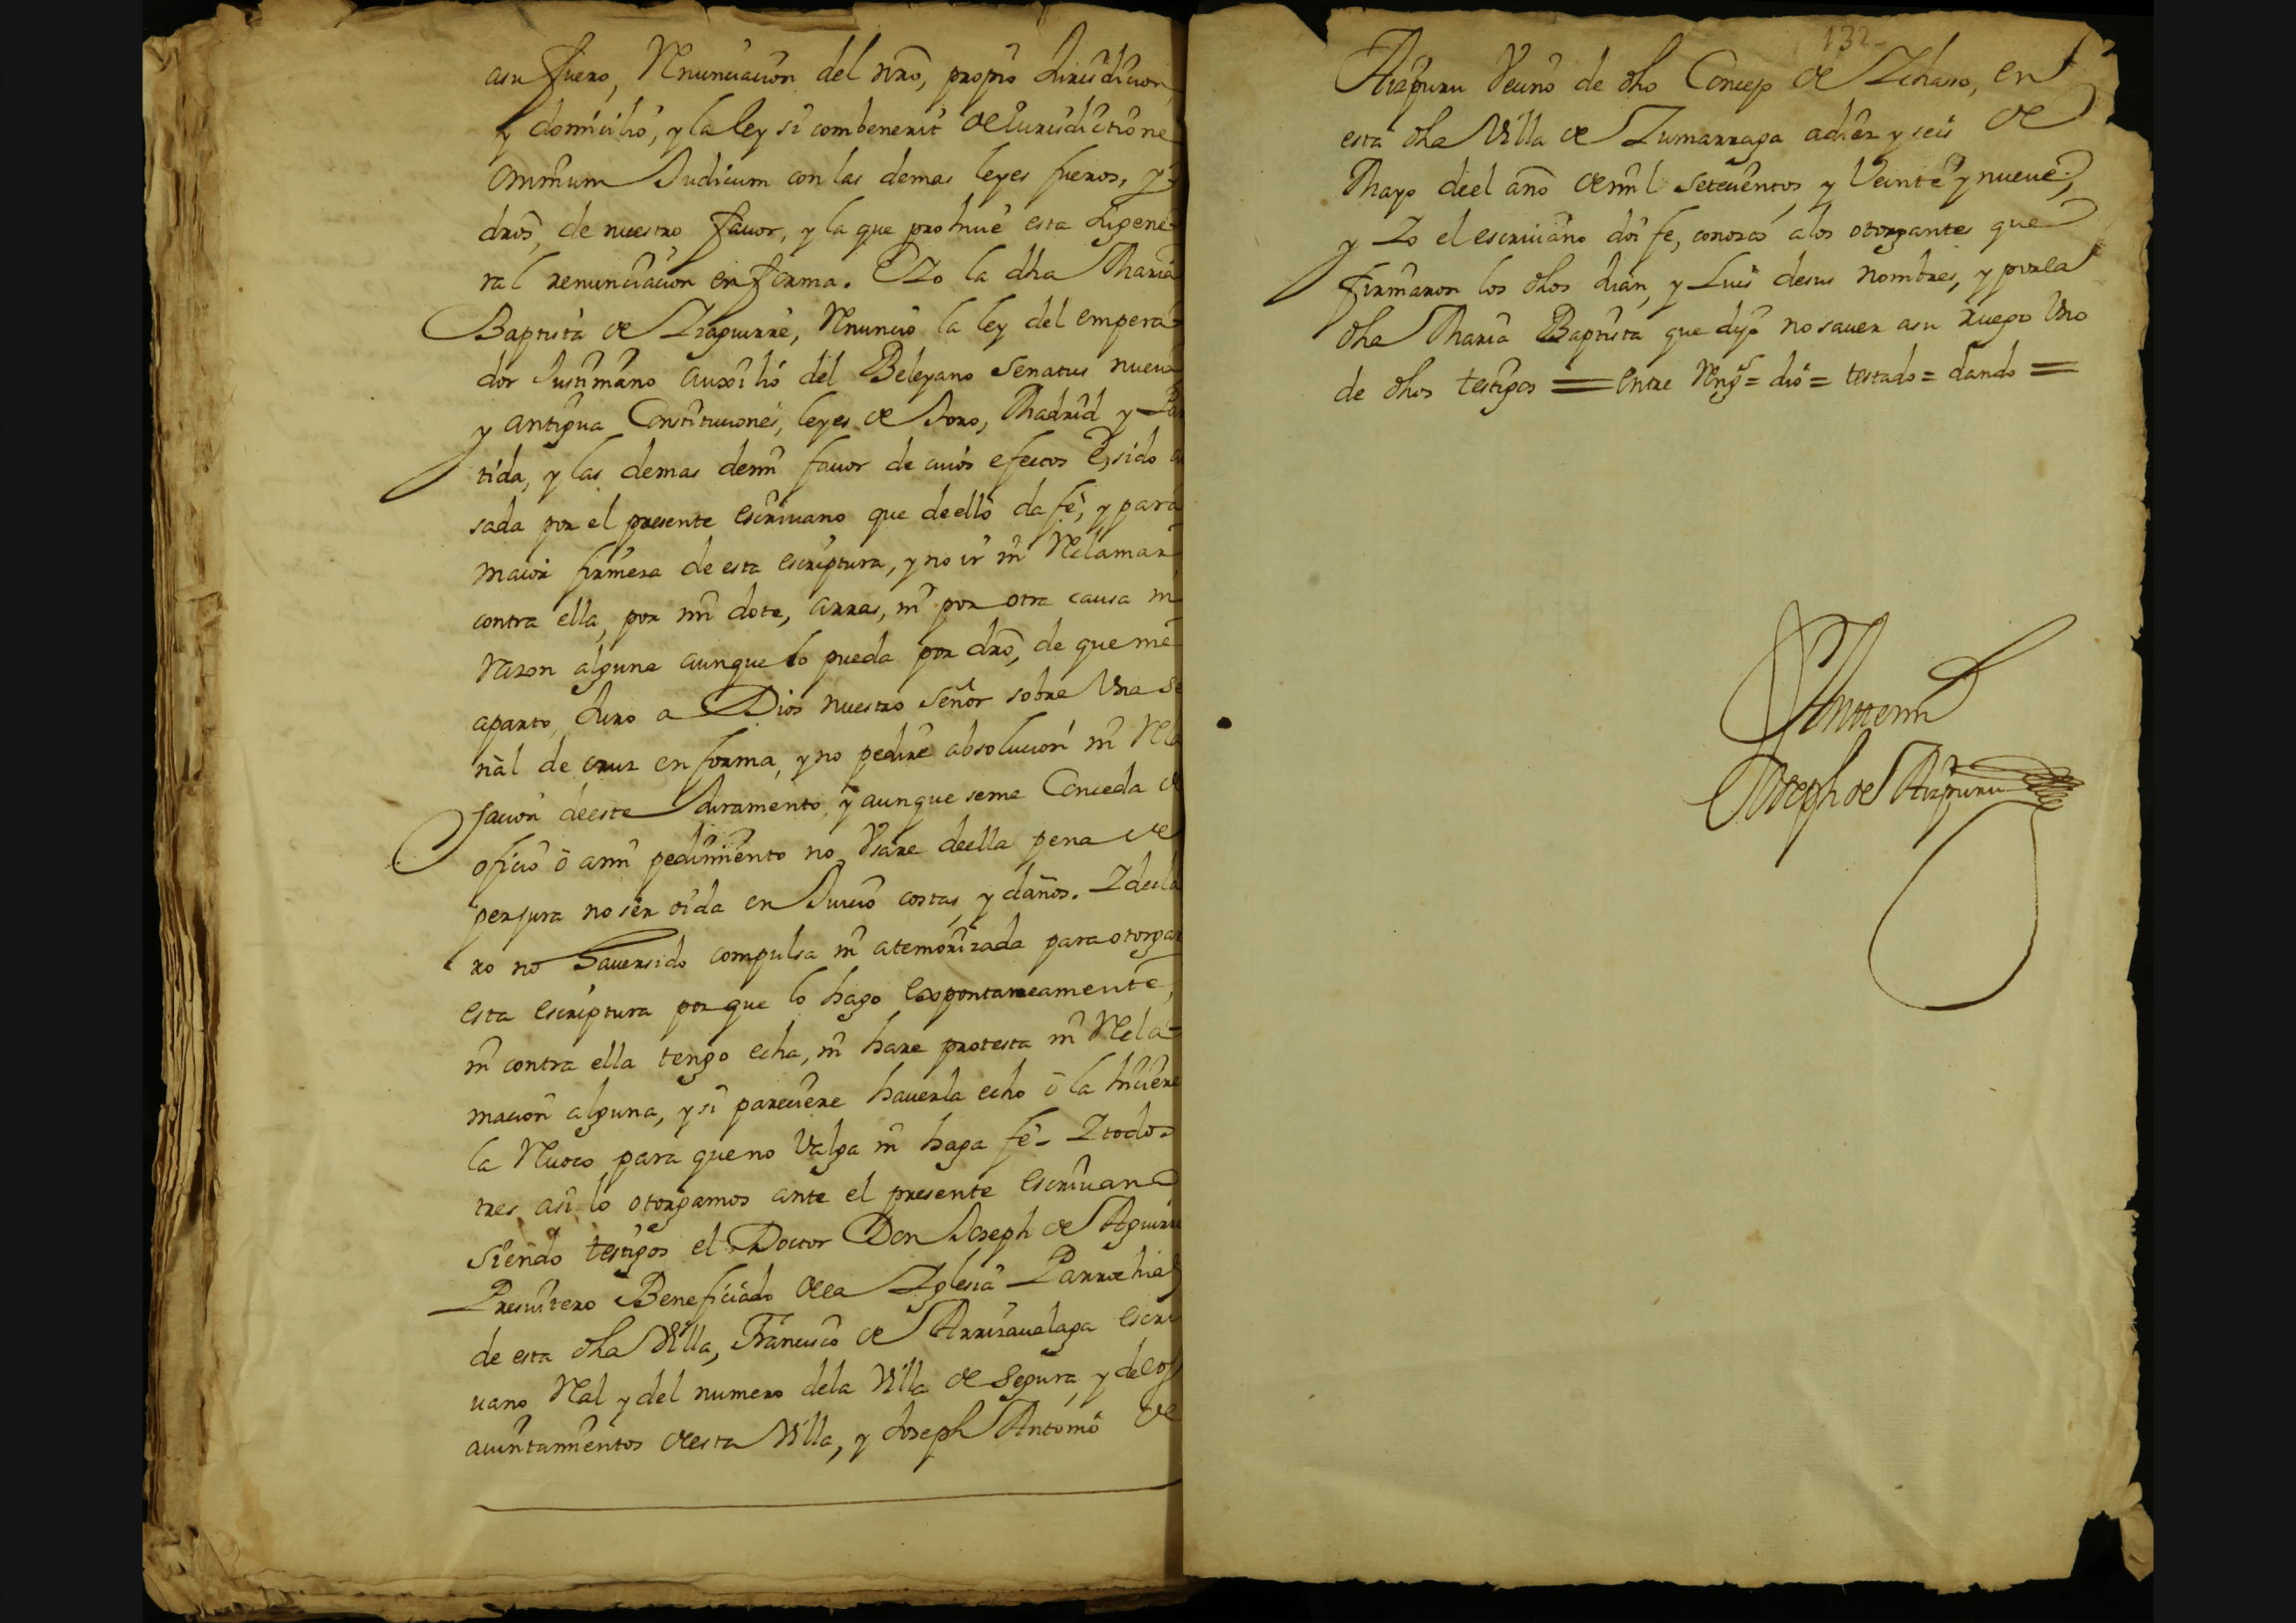 asu fuero, Rnunciacion del nrõ, proprio Jurisdicion,
y domicilio, y la ley si combenerit de Jurisdictione
omnium Judicum con las demas leyes fueros, y
drõs, de nuestro fauor, y la que prohiue esta Jigene-
ral renunciacion en forma. E Yo la dha Maria
Baptista de Yraguirre, Rnuncio la ley del empera-
dor Justiniano auxilio del Beleyano Senatus nueua
y antigua Constituciones, leyes de Toro, Madrid y Par
tida, y las demas demi fauor de cuios efectos E, sido a
sada por el presente escriuano que deello da fe, y para
maior firmeza de esta escriptura, y no ir ni Rclamar
contra ella, por mi dote, arras, ni por otra causa ni
Razon alguna aunque lo pueda por drõ, de que me
aparto, Juro a Dios nuestro Señor sobre Vna Se
ñal de cruz en forma, y no pedire absolucion ni Rela
jacion deeste Juramento, y aunque seme Conceda de
oficio ò ami pedimiento no Vsare deella pena de
perjura no ser oida en Juicio costas, y daños. Y decla
ro no hauersido compulsa ni atemorizada para otorgar
esta escriptura por que lo hago expontaneamente,
ni contra ella tengo echa, ni hare protesta ni Rcla-
macion alguna, y si pareciere hauerla echo ò la hiciere
la Ruoco para que no Valga ni haga fe- Y todos
tres asi lo otorgamos ante el presente escriuano
siendo testigos el Doctor Don Joseph de Aguirre
Presuitero Beneficiado de la Yglesia Parrochial
de esta dha Villa, Francisco de Arrizaualaga escri
uano Ral y del numero dela Villa de Segura, y de los
auintamientos de esta Villa, y Joseph Antonio de
132
Aizpuru Vecino de dho Concejo de Ychaso, en
esta dha Villa de Zumarraga adiez y seis de
Mayo deel año de mil Setecientos, y Veinte y nueue,
y Yo el escriuano doi fe, conozco alos otorgantes que
firmaron los dhos Juan, y Luis desus nombres, y por la
dha Maria Baptista que dijo no sauer asu ruego Vno
de dhos testigos = Entre Rng.s = dio = testado = dando =
Antemi
Joseph de Aizpuru